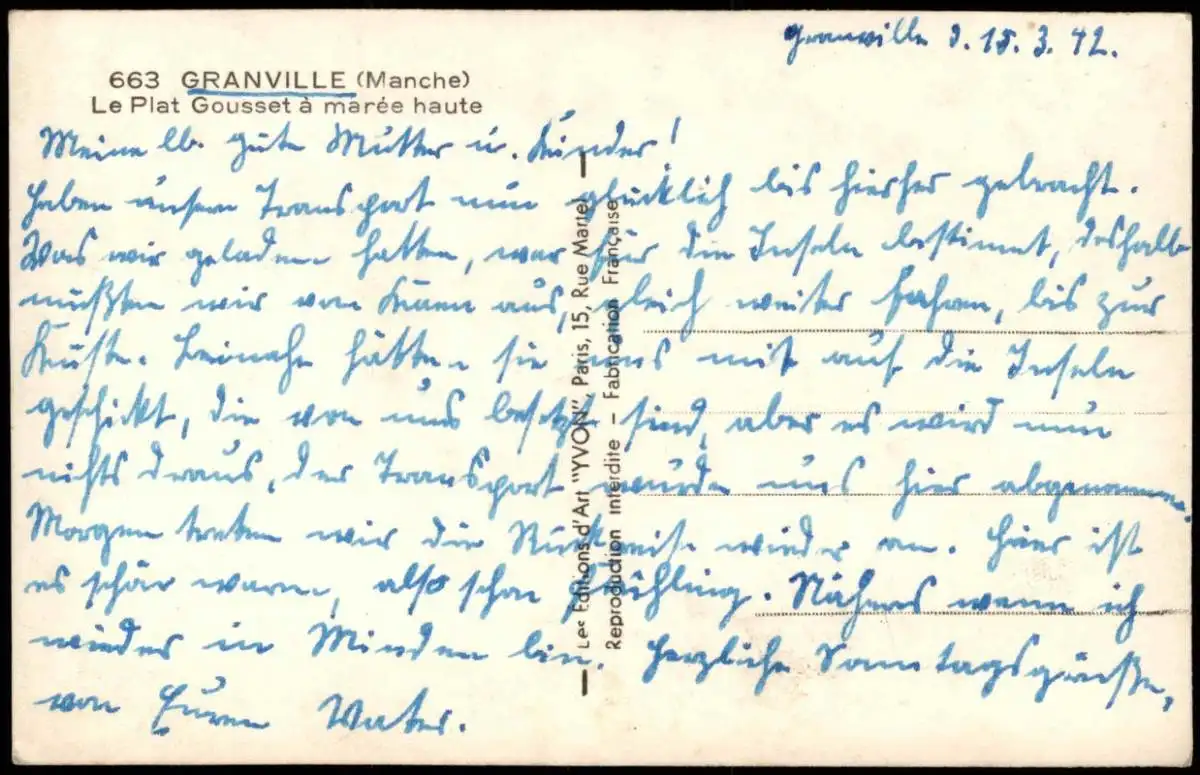 Granville d. 15. 3. 42.
663 GRANVILLE (Manche)
Le Plat Gousset à marée haute
Meine lb. gute Mutter u. Kinder!
Haben unsern Transport nun glücklich bis hierher gebracht.
Was wir geladen hatten, war für die Inseln bestimmt, deshalb
mußten wir von Caen aus, gleich weiter fahren, bis zur
Küste. Beinahe hätten sie uns mit auf die Inseln
geschickt, die von uns besetzt sind, aber es wird nun
nichts draus, der Transport wurde uns hier abgenommen.
Morgen treten wir die Rückreise wieder an. Hier ist
es schön warm, also schon Frühling. Näheres wenn ich
wieder in Minden bin. Herzliche Sonntagsgrüße,
von Euren Vater.
Les Editions d'Art "YVON", Paris, 15, Rue Martel
Reproduction Interdite – Fabrication Française